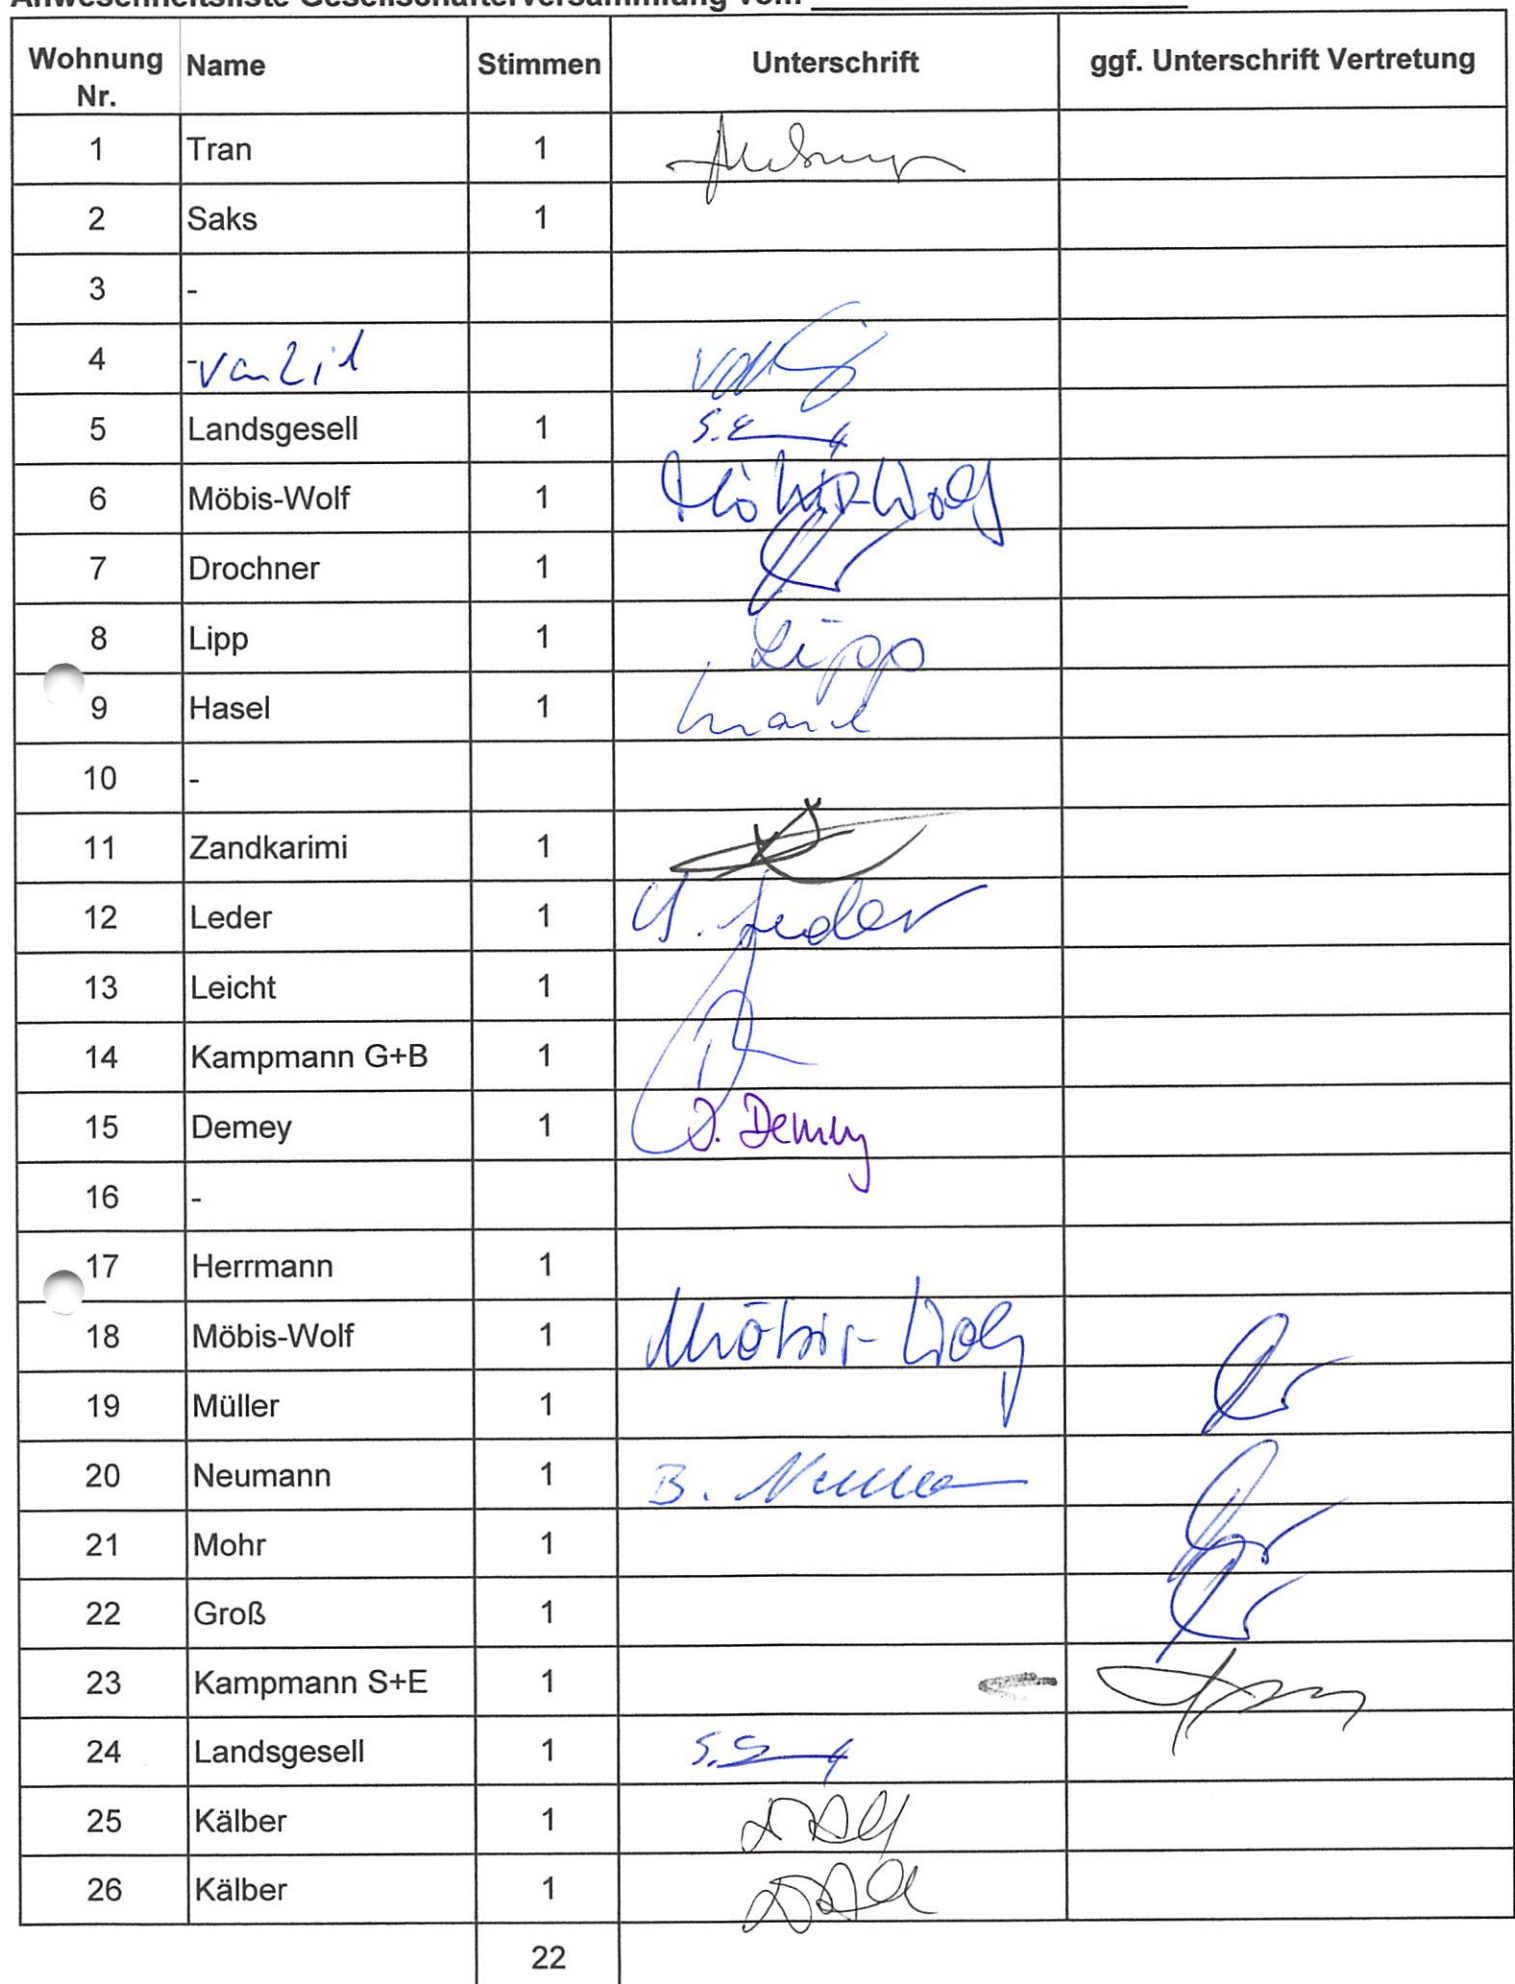 Anwesenheitsliste Gesellschafterversammlung vom
Wohnung Nr. Name Stimmen Unterschrift ggf. Unterschrift Vertretung
1 Tran 1
2 Saks 1
3 -
4 -
5 Landsgesell 1
6 Möbis-Wolf 1 Möbis-Wolf
7 Drochner 1
8 Lipp 1 Lipp
9 Hasel 1
10 -
11 Zandkarimi 1
12 Leder 1 Leder
13 Leicht 1
14 Kampmann G+B 1
15 Demey 1 D. Demey
16 -
17 Herrmann 1
18 Möbis-Wolf 1 Möbis-Wolf
19 Müller 1
20 Neumann 1 B. Neumann
21 Mohr 1
22 Groß 1
23 Kampmann S+E 1
24 Landsgesell 1
25 Kälber 1
26 Kälber 1
22